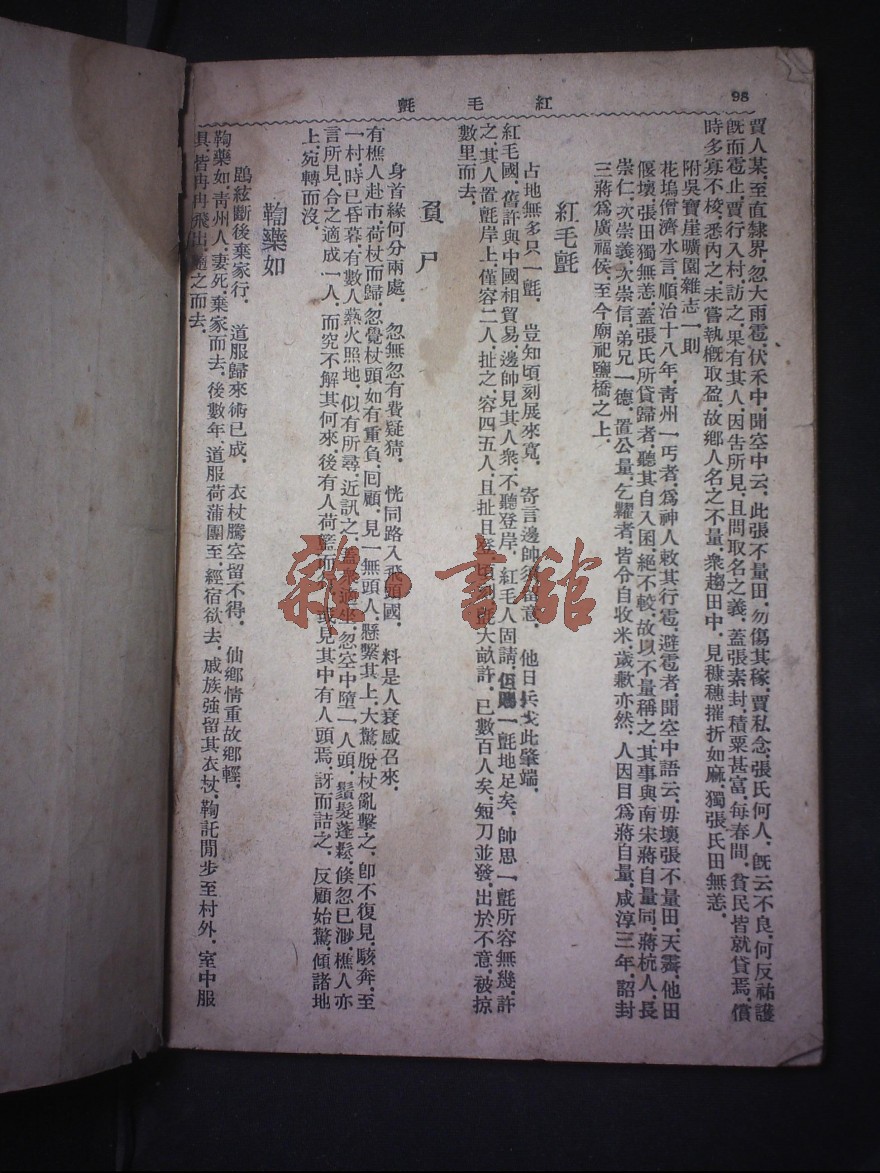 98
紅毛氈
賈人某,至直隸界,忽大雨雹,伏禾中,聞空中云,此張不量田,勿傷其稼,賈私念,張氏何人,旣云不良,何反祐護
旣而雹止,賈行入村,訪之,果有其人,因告所見,且問取名之義,蓋張素封,積粟甚富,每春間,貧民皆就貸焉,償
時多寡不校,悉內之,未嘗執槪取盈,故鄉人名之不量,衆趨田中,見穅穗摧折如麻,獨張氏田無恙.
附吳寶崖曠園雜志一則
花塢僧濟水言,順治十八年,靑州一丐者,爲神人敕其行雹,避雹者,聞空中語云,毋壞張不量田,天霽,他田
偃壞,張田獨無恙,蓋張氏所貸歸者,聽其自入囷,絕不較,故以不量稱之,其事與南宋蔣自量同,蔣杭人,長
崇仁,次崇義,次崇信,弟兄一德,置公量,乞糴者,皆令自收米,歲歉亦然,人因目爲蔣自量,咸淳三年,詔封
三蔣爲廣福侯,至今廟祀鹽橋之上.
紅毛氈
占地無多只一氈, 豈知頃刻展來寬, 寄言邊帥須留意, 他日兵戈此肇端,
紅毛國,舊許與中國相貿易,邊帥見其人衆,不聽登岸,紅毛人固請,但賜一氈地足矣,帥思一氈所容無幾,許
之,其人置氈岸上,僅容二人,扯之,容四五人,且扯且登,頃刻氈大畝許,已數百人矣,短刀並發,出於不意,被掠
數里而去.
負尸
身首緣何分兩處, 忽無忽有費疑猜, 恍同路入飛頭國, 料是人衰感召來,
有樵人赴市,荷杖而歸,忽覺杖頭如有重負,回顧,見一無頭人,懸繫其上,大驚,脫杖亂擊之,卽不復見,駭奔,至
一村,時已昏暮,有數人爇火照地,似有所尋,近訊之,蓋衆適坐,忽空中墮一人頭,鬚髮蓬鬆,倐忽已渺,樵人亦
言所見,合之適成一人,而究不解其何來,後有人荷籃而行,或見其中有人頭焉,訝而詰之,反顧始驚,傾諸地
上,宛轉而沒.
鞠藥如
鵾絃斷後棄家行, 道服歸來術已成, 衣杖騰空留不得, 仙鄉情重故鄉輕,
鞠藥如,靑州人,妻死,棄家而去,後數年,道服荷蒲團至,經宿欲去,戚族強留其衣杖,鞠託閒步至村外,室中服
具,皆冉冉飛出,隨之而去.
雜·書館